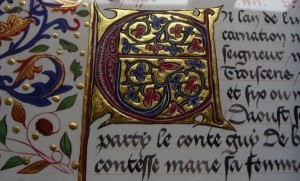 En lan de l
carnation n
seigneur
Troiscens
et six ou
Daoust
party le conte guy de
contesse marie sa femm